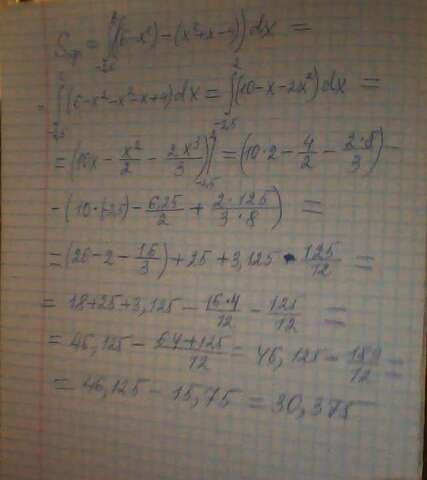 = ∫₋₂,₅² ((6-x²) - (x²+x-4)) dx =
= ∫₋₂,₅² (6-x²-x²-x+4) dx = ∫₋₂,₅² (10-x-2x²) dx =
= (10x - x²/2 - 2x³/3) |₋₂,₅² = (10·2 - 4/2 - 2·8/3) -
- (10·(-2,5) - 6,25/2 + 2·125/3·8) =
= (20-2-16/3) + 25 + 3,125 - 125/12 =
= 18+25+3,125 - 16·4/12 - 125/12 =
= 46,125 - 64+125/12 = 46,125 - 189/12 =
= 46,125 - 15,75 = 30,375